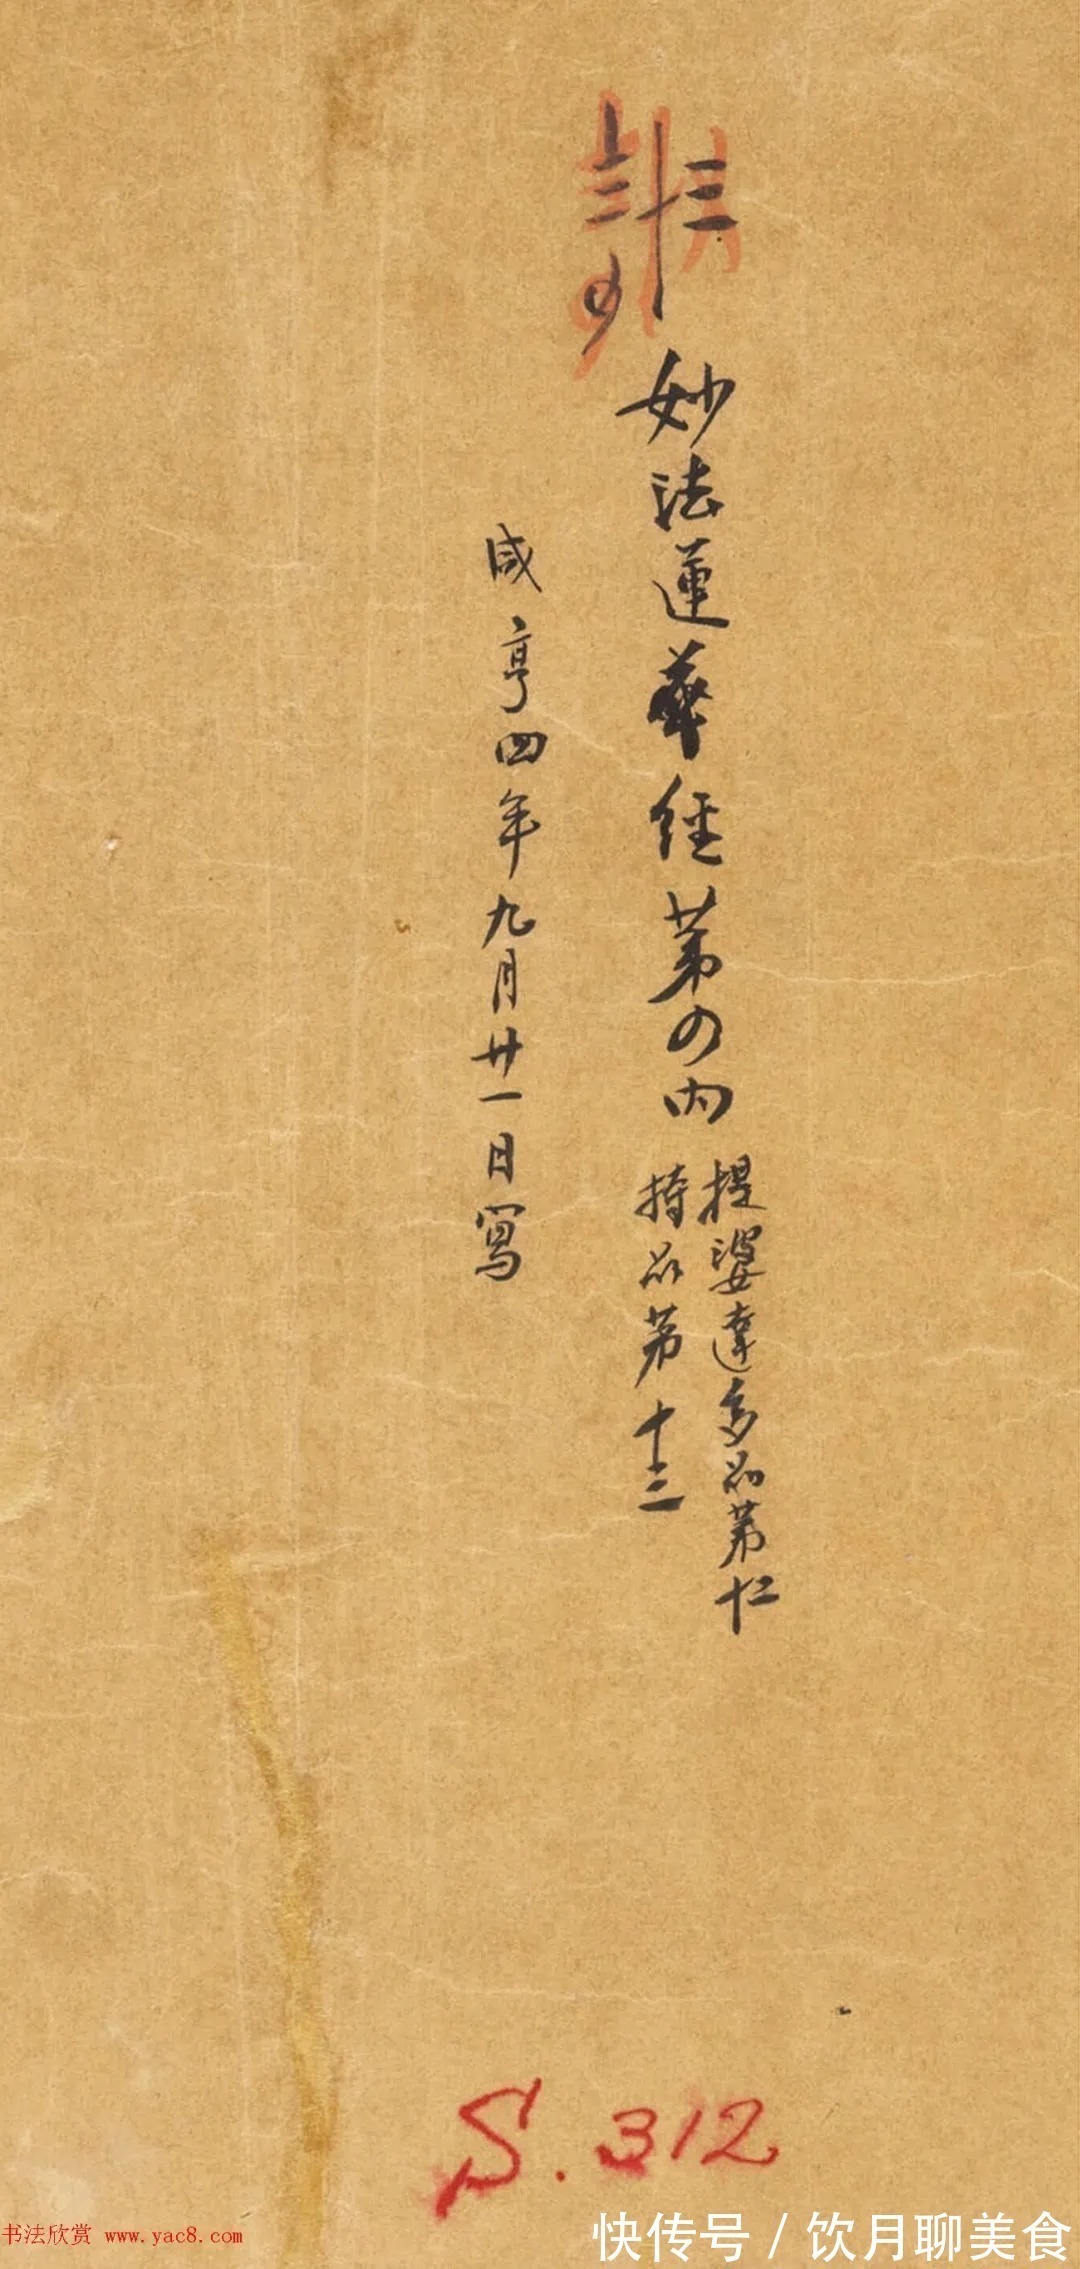 妙法蓮華經第四内
提婆達多品第十二
持品第十三
咸亨四年九月廿一日寫
S. 312
书法欣赏 www.yac8.com
快传号 / 饮月聊美食